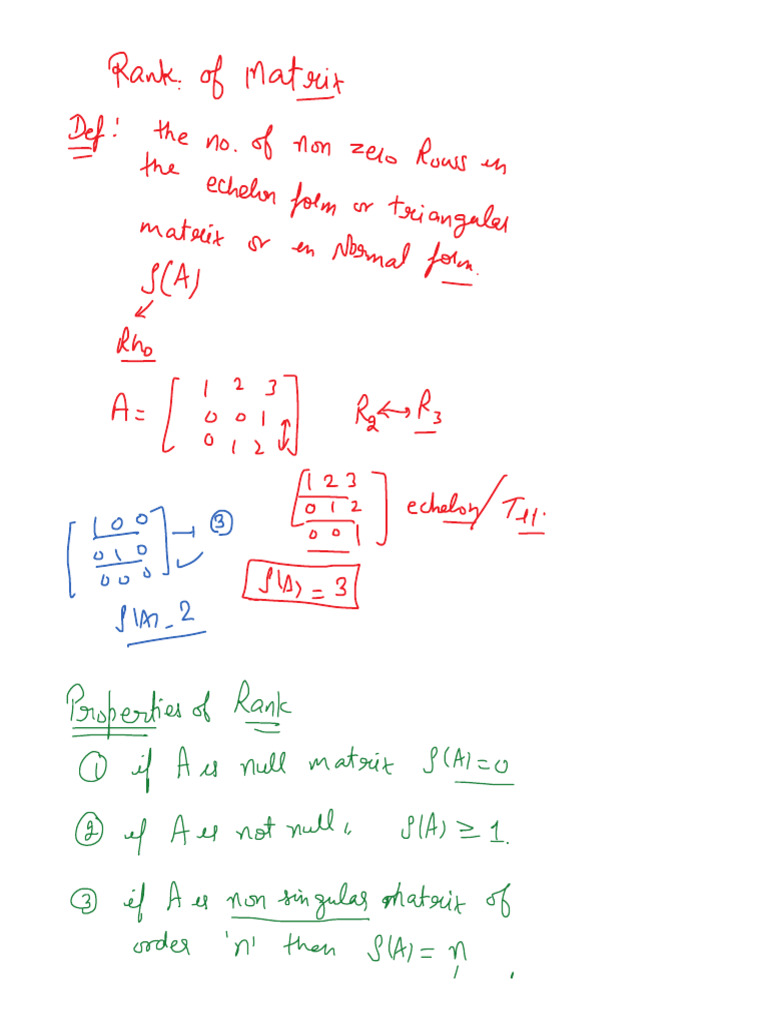 Rank of Matrix
Def: the no. of non zero Rows in
the echelon form or triangular
matrix or in Normal form.
ρ(A)
Rho
A = [ 1 2 3
0 0 1
0 1 2 ] R2 ↔ R3
[ 1 2 3
0 1 2
0 0 1 ] echelon/
[ 1 0 0
0 1 0
0 0 0 ] → ③
ρ(A) = 3
ρ(A) = 2
Properties of Rank
① if A is null matrix ρ(A) = 0
② if A is not null, ρ(A) ≥ 1.
③ if A is non singular matrix of
order 'n' then ρ(A) = n